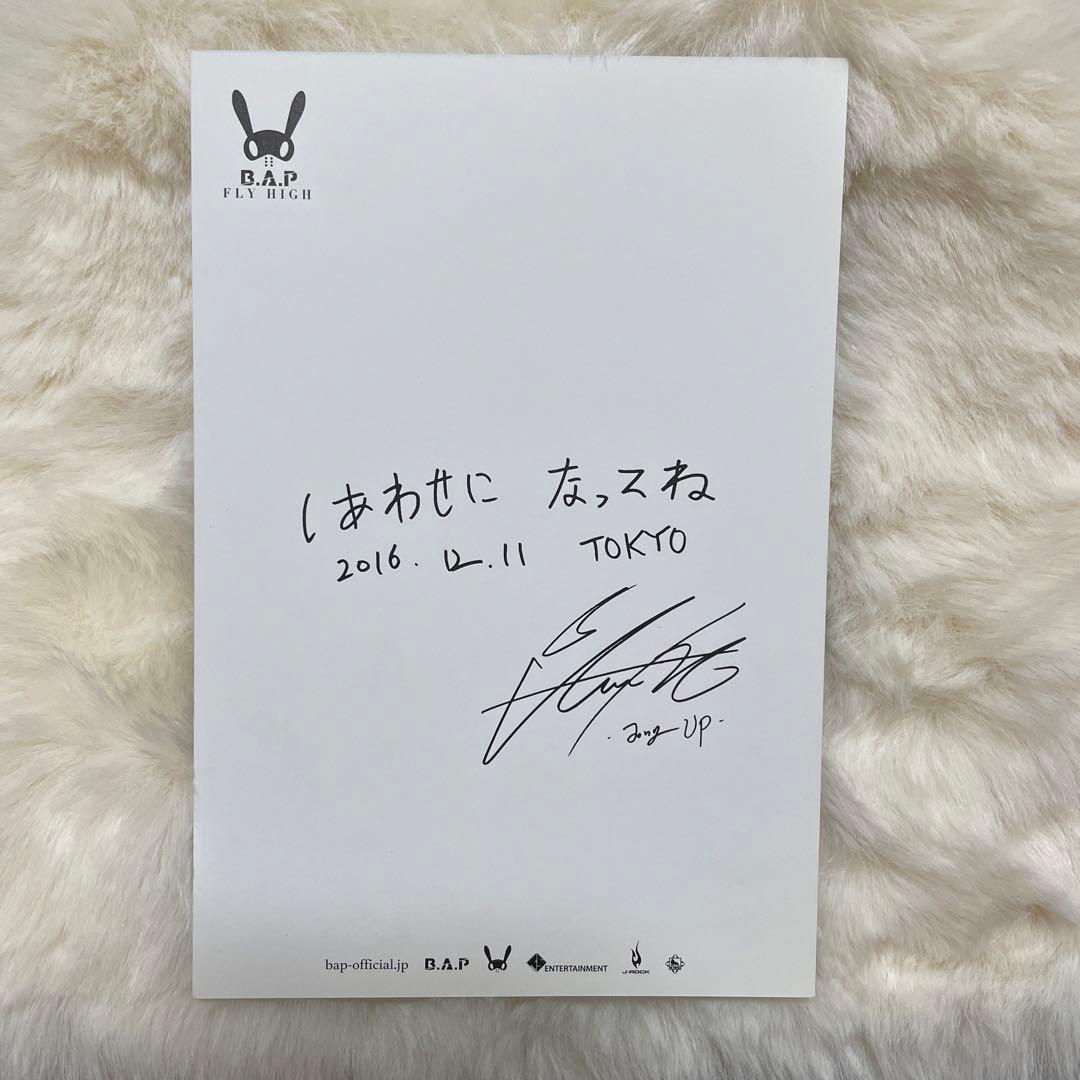 B.A.P
FLY HIGH
しあわせに なってね
2016. 12. 11 TOKYO
- Jong UP -
bap-official.jp B.A.P ENTERTAINMENT J-ROCK